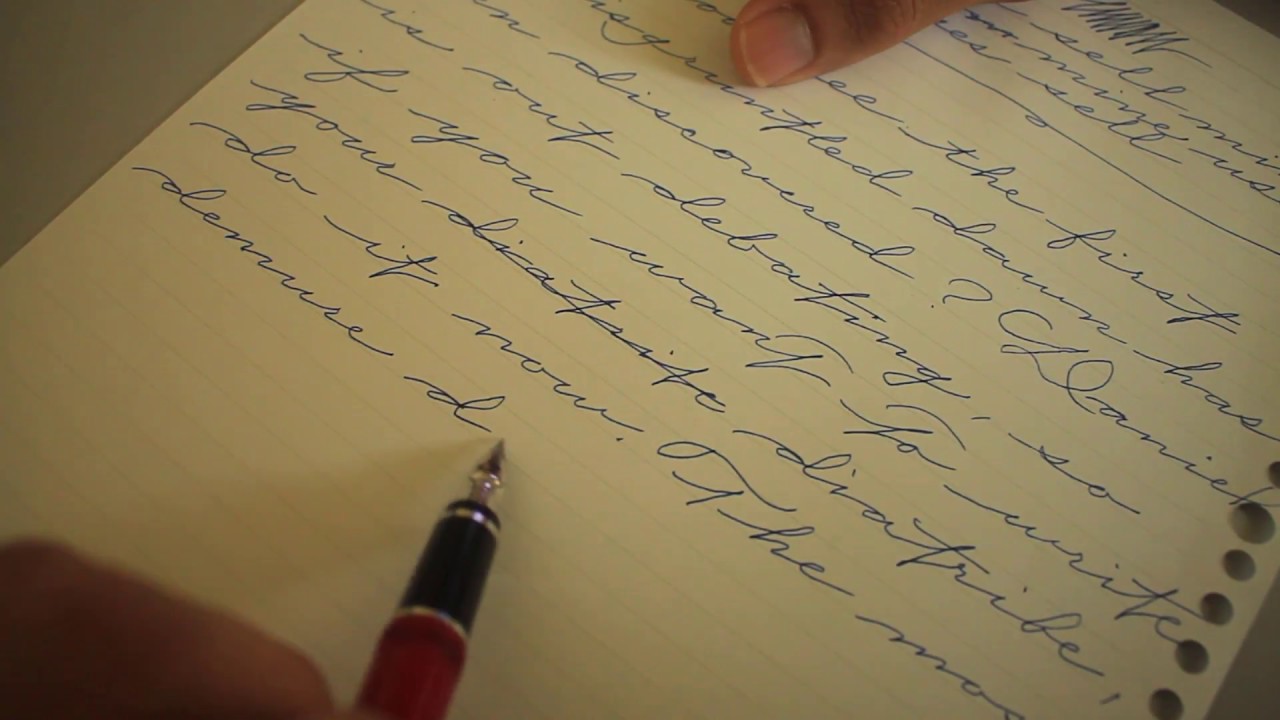 see, the first
disgruntled dawn has
discovered? Daniel
is out debating, so
if you want to write
your diatrite diatribe,
do it now. The mos
demure d